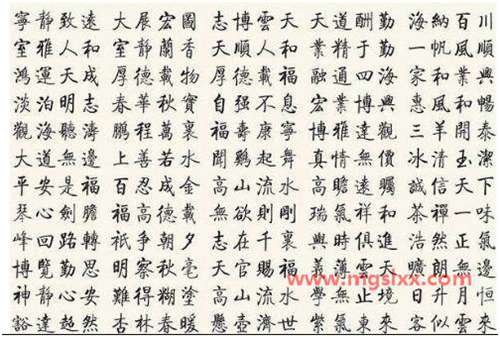 寧靜致遠 大展宏圖 志博雲天 天道酬勤 海納百川
室雅人和 室靜蘭香 順人和 精于勤 一帆風順
鴻運天成 厚德載物 厚德載福 融通四海 家和業興
淡泊明志 春華秋實 自强不息 宏業博興 惠風和暢
觀海聽濤 鵬程萬裏 福壽康寧 博雅達觀 三羊開泰
大道無邊 上善若水 聞鷄起舞 真情無價 冰清玉潔
平安是福 百忍成金 高山流水 高瞻遠矚 誠信天下
琴心劍膽 福高德載 無欲則剛 瑞氣祥和 茶禪一味
峰回路轉 祇爭朝夕 志在千裏 與時俱進 浩然正氣
博覽勤思 明察秋毫 天官賜福 義薄雲天 朗無邊
www.mgslxx.com
神靜心安 難得糊塗 高山流水 學無止境 日升月恒
豁達超然 杏林春暖 懸壺濟世 紫氣東來 客似雲來